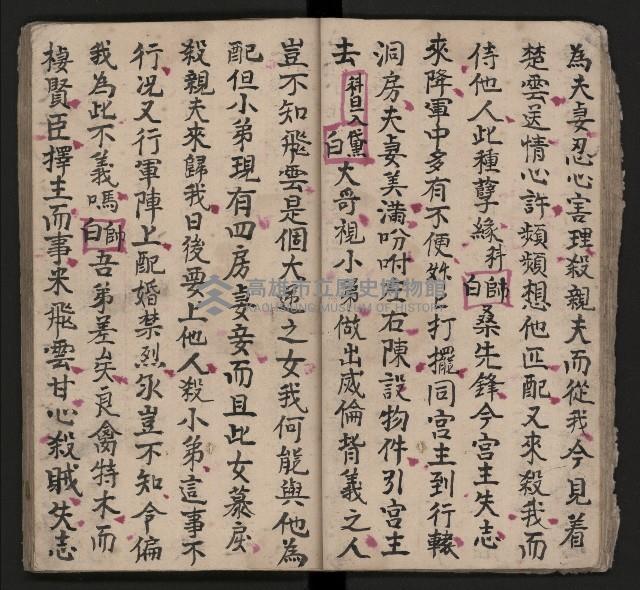 為夫妻忍心害理殺親夫而從我今見着
楚雲送情心許頻頻想他匹配又來殺我而
侍他人此種孽緣科帥白桑先鋒今宮主失志
來降軍中多有不便妳們打擺同宮主到行轅
洞房夫妻美滿吩咐左右陳設物件引宮主
去科旦入黛白大哥視小弟做出威倫背義之人
豈不知飛雲是個大逆之女我何能與他為
配但小弟現有四房妻妾而且此女慕戾
殺親夫來歸我日後要上他人殺小弟這事不
行况又行軍陣上配婚禁烈氷豈不知令偏
我為此不義嗎帥白吾弟差矣良禽特木而
棲賢臣擇主而事来飛雲甘心殺賊失志
高雄市立歷史博物館
KAOHSIUNG MUSEUM OF HISTORY